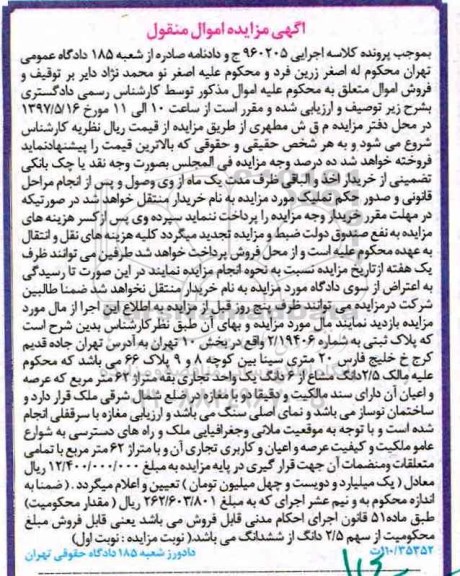 آگهی مزایده اموال منقول
بموجب پرونده کلاسه اجرایی ۹۶۰۲۰۵ ج و دادنامه صادره از شعبه ۱۸۵ دادگاه عمومی
تهران محکوم له اصغر زرین فرد و محکوم علیه اصغر نو محمد نژاد دایر بر توقیف و
فروش اموال متعلق به محکوم علیه اموال مذکور توسط کارشناس رسمی دادگستری
بشرح زیر توصیف و ارزیابی شده و مقرر است از ساعت ۱۰ الی ۱۱ مورخ ۱۳۹۷/۵/۱۶
در محل دفتر مزایده م ق ش مطهری از طریق مزایده از قیمت ریال نظریه کارشناس
شروع می شود و به هر شخص حقیقی و حقوقی که بالاترین قیمت را پیشنهادنماید
فروخته خواهد شد ده درصد وجه مزایده فی المجلس بصورت وجه نقد یا چک بانکی
تضمینی از خریدار اخذ و الباقی ظرف مدت یک ماه از وی وصول و پس از انجام مراحل
قانونی و صدور حکم تملیک مورد مزایده به نام خریدار منتقل خواهد شد در صورتیکه
در مهلت مقرر خریدار وجه مزایده را پرداخت ننماید سپرده وی پس از کسر هزینه های
مزایده به نفع صندوق دولت ضبط و مزایده تجدید میگردد کلیه هزینه های نقل و انتقال
به عهده محکوم علیه است و از محل فروش پرداخت خواهد شد طرفین می توانند ظرف
یک هفته از تاریخ مزایده نسبت به نحوه انجام مزایده نمایند در این صورت تا رسیدگی
به اعتراض از سوی دادگاه مورد مزایده به نام خریدار منتقل نخواهد شد ضمنا طالبین
شرکت در مزایده می توانند ظرف پنج روز قبل از مزایده به اطلاع این اجرا از مال مورد
مزایده بازدید نمایند مال مورد مزایده و بهای آن طبق نظر کارشناس بدین شرح است
که پلاک ثبتی به شماره ۲/۱۹۴۰۶ واقع در بخش ۱۰ تهران به آدرس تهران جاده قدیم
کرج خ خلیج فارس ۲۰ متری سینا بین کوچه ۸ و ۹ پلاک ۶۶ می باشد که محکوم
علیه مالک ۲/۵دانگ مشاع از ۶ دانگ یک واحد تجاری بقه متراژ ۶۲ متر مربع که عرصه
و اعیان آن دارای سند مالکیت و دقیقا دو باب مغازه در ضلع شمال شرقی ملک قرار دارد و
ساختمان نوساز می باشد و نمای اصلی سنگ می باشد و ارزیابی مغازه با سرقفلی انجام
شده است و با توجه به موقعیت ملانی وجغرافیایی ملک و راه های دسترسی به شوارع
عامو ملکیت و کیفیت عرصه و اعیان و کاربری تجاری آن و با متراژ ۶۲ متر مربع با تمامی
متعلقات ومنضمات آن جهت قرار گیری در پایه مزایده به مبلغ ۱۲/۴۰۰/۰۰۰/۰۰۰ ریال
معادل ( یک میلیارد و دویست و چهل میلیون تومان ) تعیین و اعلام میگردد . ( ضمنا به
اندازه محکوم به و نیم عشر اجرای که به مبلغ ۲۶۲/۶۰۳/۸۰۱ ریال ( مقدار محکومیت)
طبق ماده۵۱ قانون اجرای احکام مدنی قابل فروش می باشد یعنی قابل فروش مبلغ
محکومیت از سهم ۲/۵ دانگ از ششدانگ می باشد.( نوبت مزایده : نوبت اول)
۱۱۰/۳۵۳۵۲/ت دادورز شعبه ۱۸۵ دادگاه حقوقی تهران